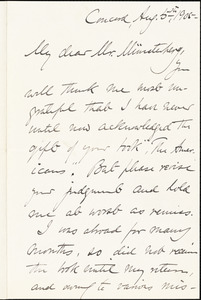 Concord Aug. 5th 1905-
My dear Mr. Münsterberg,
You
will think me most un-
grateful that I have never
until now acknowledged the
gift of your book "The Amer-
icans". But please revise
your judgment and hold
me at worst as remiss.
I was abroad for many
months, so did not receive
the book until my return,
and owing to various mis-